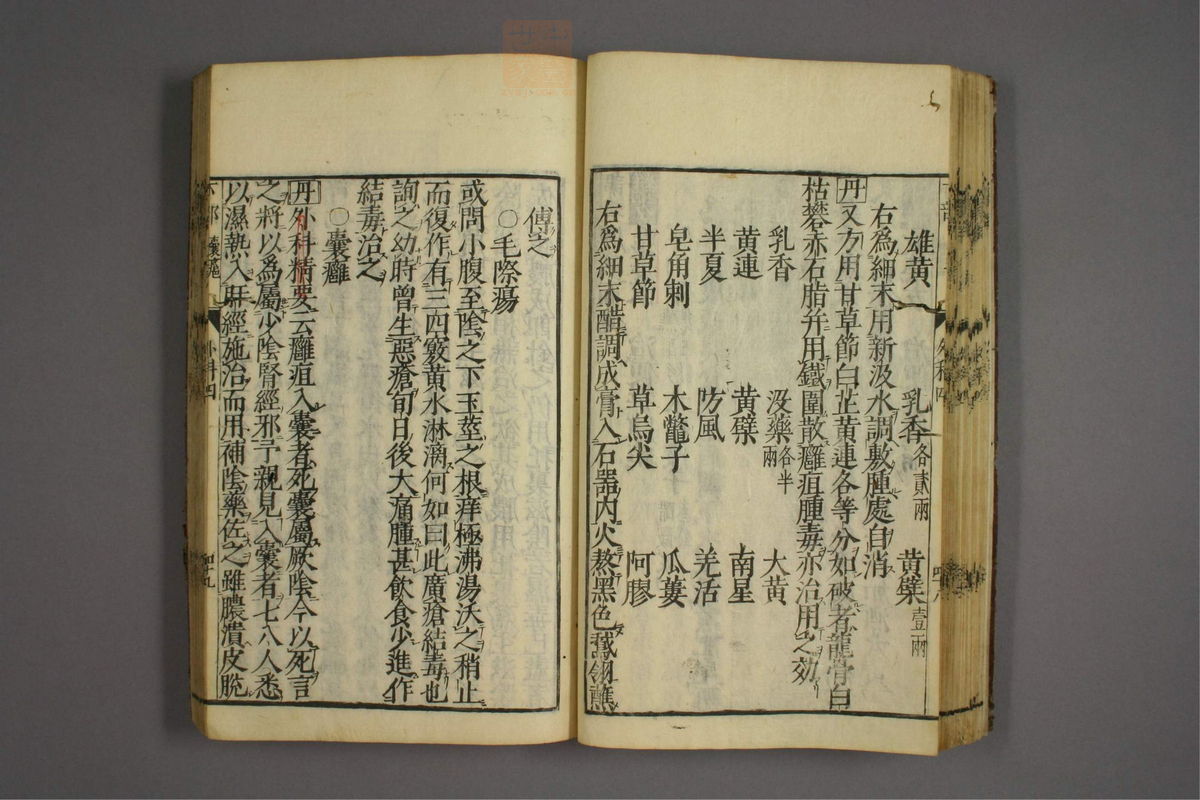 雄黄 乳香各貳兩 黄檗壹兩
右為細末用新汲水調敷腫處自消
丹又方用甘草節白芷黄連各等分如破者龍骨白
枯礬赤石脂并用鐵圍散癰疽腫毒亦治用之効
乳香 没藥各半兩 大黄
黄連 黄檗 南星
半夏 防風 羌活
皂角刺 木鼈子 瓜蔞
甘草節 草烏尖 阿膠
右為細末醋調成膏入石器内火熬黑色鵞翎蘸
傅之
〇毛際瘍
或問小腹至陰之下玉莖之根痒極沸湯沃之稍止
而復作有三四竅黄水淋漓何如曰此廣瘡結毒也
詢之幼時曾生惡瘡旬日後大痛腫甚飲食少進作
結毒治之
〇囊癰
丹外科精要云癰疽入囊者死囊屬厥陰今以死言
之將以為屬少陰腎經邪予親見入囊者七八人悉
以濕熱入肝經施治而用補陰藥佐之雖膿潰皮脫
囊癰 外科四